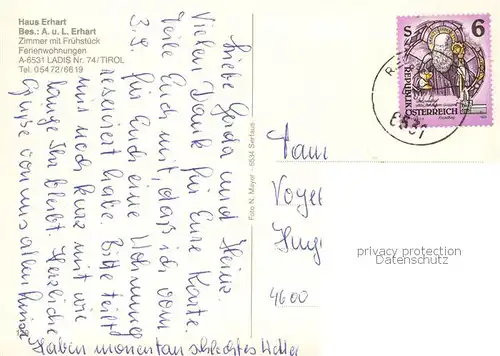 Haus Erhart
Bes.: A. u. L. Erhart
Zimmer mit Frühstück
Ferienwohnungen
A-6531 LADIS Nr. 74/TIROL
Tel. 05472/6819
Liebe Gerda und Heinz.
Vielen Dank für Eure Karte.
Teile Euch mit daß ich vom
3.9. für Euch eine Wohnung
reserviert habe. Bitte teilt
mir noch kurz mit wie
lange Ihr bleibt. Herzliche
Grüße von uns allen
Haben momentan schlechtes Wetter
Foto N. Mayer - 6534 Serfaus
S 6
REPUBLIK
ÖSTERREICH
6531
Fam
Vogel
Hug
4600
privacy protection
Datenschutz